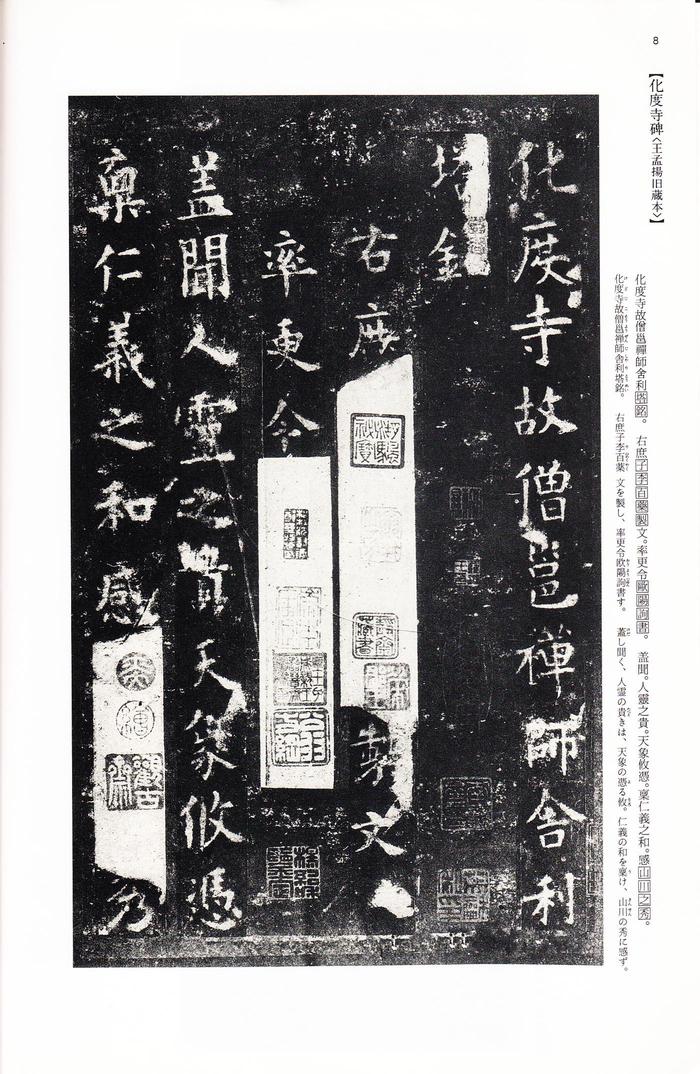 8
【化度寺碑〈王孟揚旧蔵本〉】
化度寺故僧邕禪師舍利塔銘。 右庶子李百藥製文。率更令歐陽詢書。 蓋聞。人靈之貴。天象攸憑。稟仁義之和。感山川之秀。
化度寺故僧邕禅師舎利塔銘。 右庶子李百薬 文を製し、率更令欧陽詢書す。 蓋し聞く、人霊の貴きは、天象の憑る攸。仁義の和を稟け、山川の秀に感ず。
化度寺故僧邕禪師舍利
塔銘
右庶 製文
率更令
蓋聞人靈之貴天象攸憑
稟仁義之和感